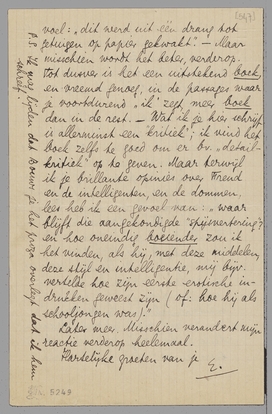 (547)
voel: „dit werd uit één drang tot
getuigen op papier gekwakt". — Maar
misschien wordt het beter, verderop.
Tot dusver is het een uitstekend boek,
en vreemd genoeg, in de passages waar
je voortdurend „ik" zegt meer boek
dan in de rest. — Wat ik je hier schrijf
is allerminst een 'kritiek'; ik vind het
boek zelfs te goed om er bv. „detail-
kritiek" op te geven. Maar terwijl
ik je brillante opinies over Freud
en de intelligenten, en de dommen,
lees heb ik een gevoel van: „waar
blijft die aangekondigde "spijsvertering"?
en hoe oneindig boeiender zou ik
het vinden, als hij, met deze middelen,
deze stijl en intelligentie, mij bijv.
vertelde hoe zijn eerste erotische in-
drukken geweest zijn (of: hoe hij als
schooljongen was)."
Later meer. Misschien verandert mijn
reactie verderop heelemaal.
Hartelijke groeten van je
E.
P.S. Ik mag lijden dat Bouws je het proza overlegt dat ik hem
schreef!
5243